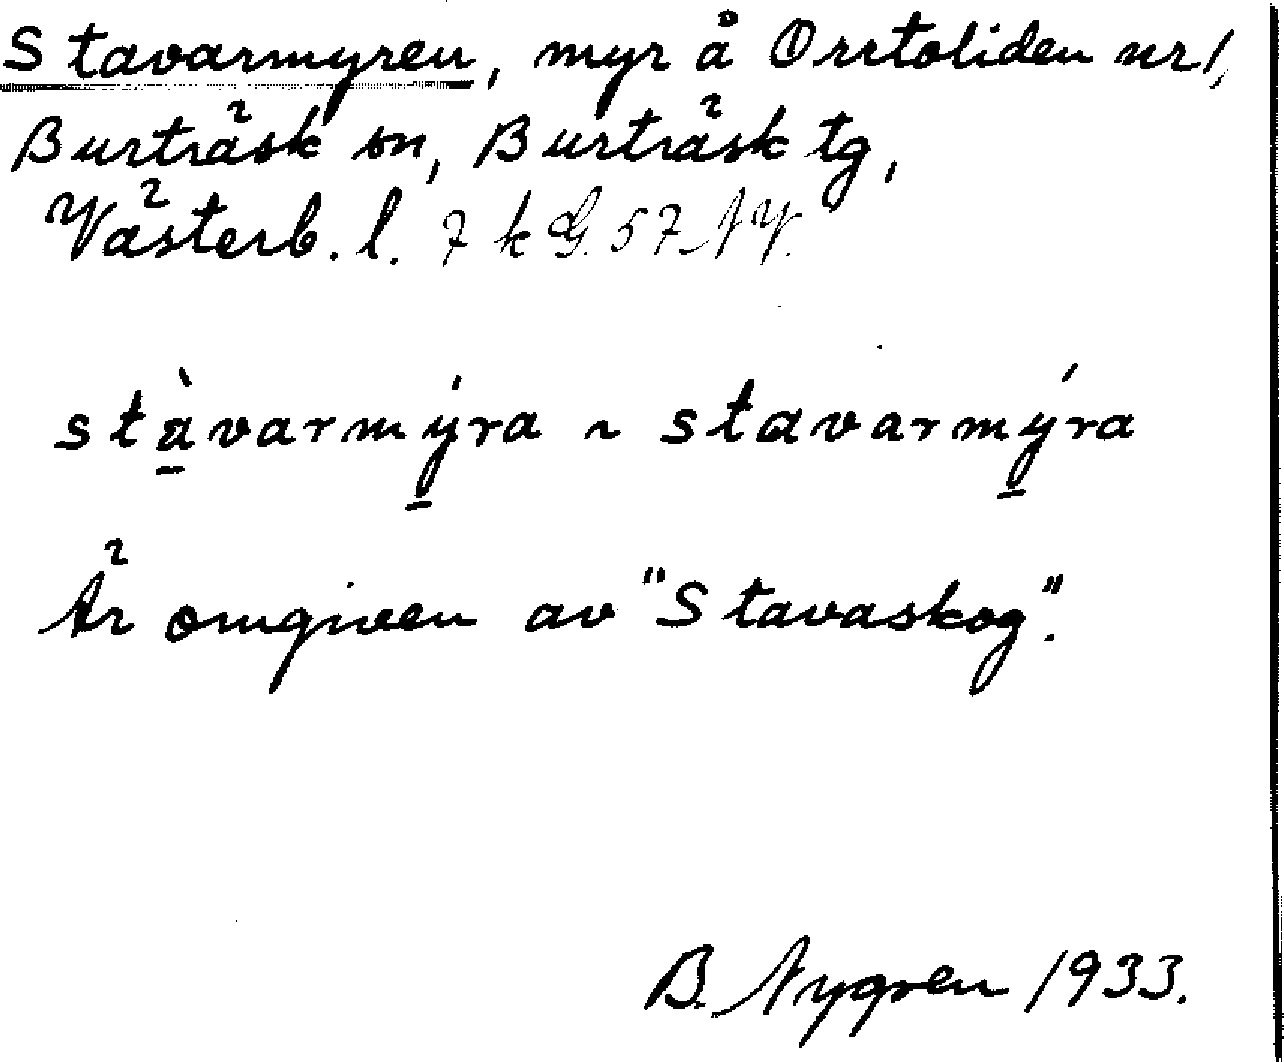 Stavarmyren, myr å Orrtoliden nr 1,
Burträsk sn, Burträsk tg,
Västerb. l. 7 k G. 57 NY.
stàvarmýra ~ stavarmýra
Är omgiven av "Stavaskog".
B. Nygren 1933.